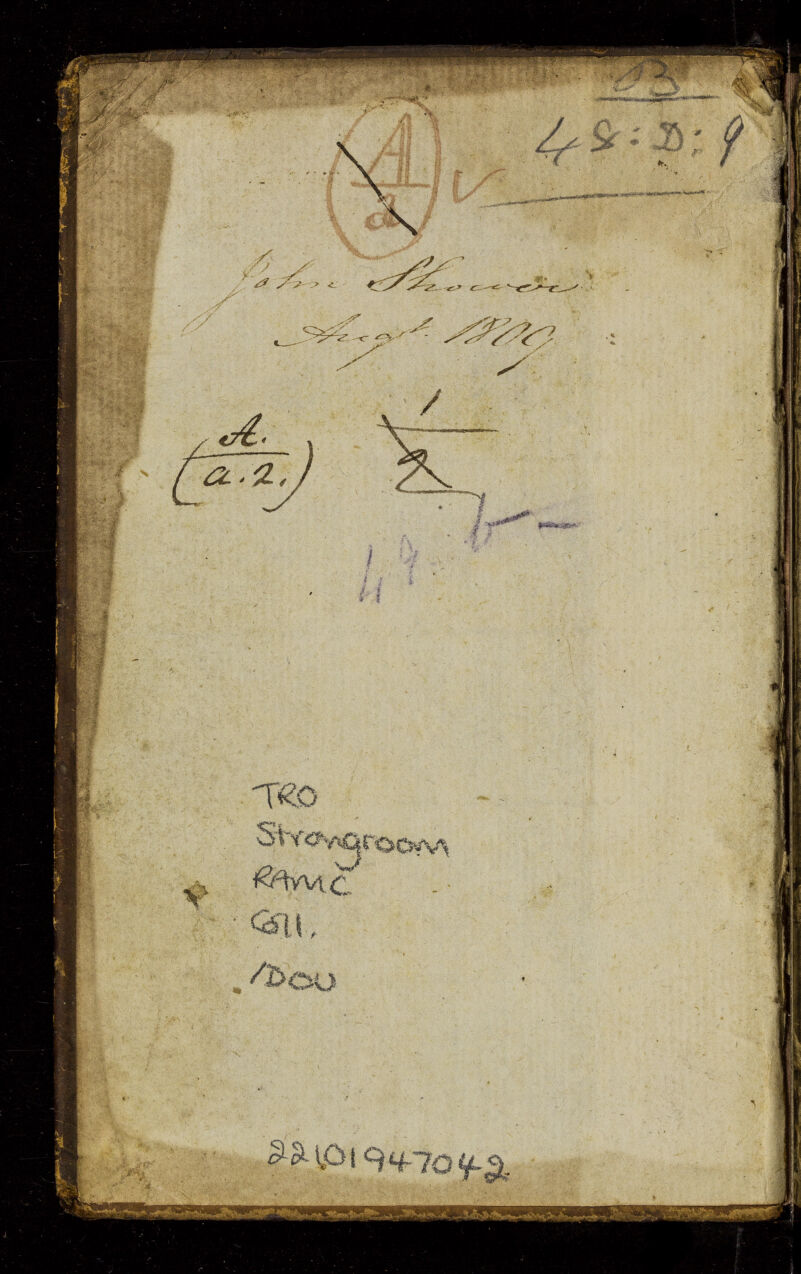 B
48:D:9
A
a
John Shower
Augt. 1809
A.
(a.2.)
1
2
6-
49
TRO
Strongroom
RAMC
Coll.
/DOU
22101947042